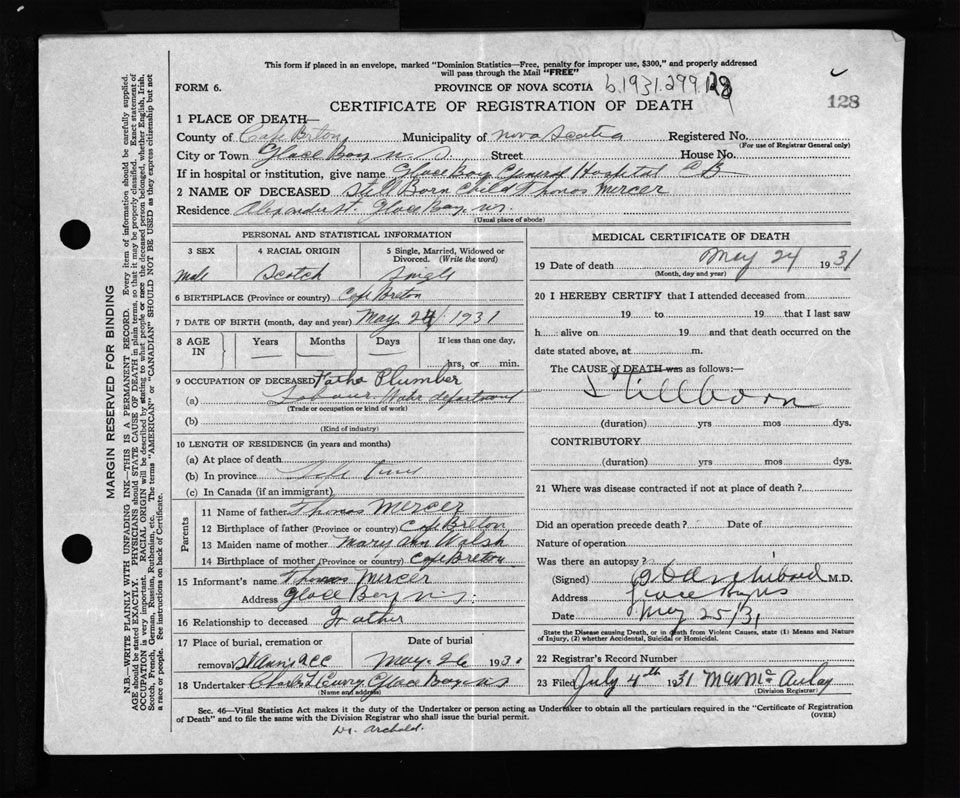 This form if placed in an envelope, marked "Dominion Statistics—Free, penalty for improper use, $300," and properly addressed
will pass through the Mail "FREE"
FORM 6. PROVINCE OF NOVA SCOTIA b.1931.299.128
128
CERTIFICATE OF REGISTRATION OF DEATH
1 PLACE OF DEATH—
County of Cape Breton Municipality of Nova Scotia Registered No.
(For use of Registrar General only)
City or Town Glace Bay N.S. Street House No.
If in hospital or institution, give name Glace Bay General Hospital CB
2 NAME OF DECEASED Still Born Child Thomas Mercer
Residence Alexander St. Glace Bay, N.S.
(Usual place of abode)
PERSONAL AND STATISTICAL INFORMATION
3 SEX 4 RACIAL ORIGIN 5 Single, Married, Widowed or
Divorced. (Write the word)
Male Scotch Single
6 BIRTHPLACE (Province or country) Cape Breton
7 DATE OF BIRTH (month, day and year) May 24 1931
8 AGE IN Years Months Days If less than one day,
hrs, or min.
9 OCCUPATION OF DECEASED Father Plumber
(a) Labour. Water department
(Trade or occupation or kind of work)
(b)
(Kind of industry)
10 LENGTH OF RESIDENCE (in years and months)
(a) At place of death
(b) In province Life Time
(c) In Canada (if an immigrant)
Parents
11 Name of father Thomas Mercer
12 Birthplace of father (Province or country) Cape Breton
13 Maiden name of mother Mary Ann Walsh
14 Birthplace of mother (Province or country) Cape Breton
15 Informant's name Thomas Mercer
Address Glace Bay N.S.
16 Relationship to deceased Father
17 Place of burial, cremation or Date of burial
removal St Anns GCC May 26 1931
18 Undertaker Charles T Curry Glace Bay N.S.
(Name and address)
MEDICAL CERTIFICATE OF DEATH
19 Date of death May 24 1931
(Month, day and year)
20 I HEREBY CERTIFY that I attended deceased from
19 to 19 that I last saw
h alive on 19 and that death occurred on the
date stated above, at m.
The CAUSE of DEATH was as follows:—
Stillborn
(duration) yrs mos dys.
CONTRIBUTORY
(duration) yrs mos dys.
21 Where was disease contracted if not at place of death?
Did an operation precede death? Date of
Nature of operation
Was there an autopsy?
(Signed) Archibald M.D.
Address Glace Bay NS
Date May 25/31
State the Disease causing Death, or in death from Violent Causes, state (1) Means and Nature
of Injury, (2) whether Accidental, Suicidal or Homicidal.
22 Registrar's Record Number
23 Filed July 4th 1931 McAulay
(Division Registrar)
Sec. 46—Vital Statistics Act makes it the duty of the Undertaker or person acting as Undertaker to obtain all the particulars required in the "Certificate of Registration
of Death" and to file the same with the Division Registrar who shall issue the burial permit. (OVER)
Dr. Archibald.
MARGIN RESERVED FOR BINDING
N.B.—WRITE PLAINLY WITH UNFADING INK—THIS IS A PERMANENT RECORD. Every item of information should be carefully supplied.
AGE should be stated EXACTLY. PHYSICIANS should STATE CAUSE OF DEATH in plain terms, so that it may be properly classified. Exact statement of
OCCUPATION is very important. RACIAL ORIGIN will be described by stating to what people or race the deceased person belonged, whether English, Irish,
Scotch, French, German, Russian, Ruthenian, etc. The terms "AMERICAN" or "CANADIAN" SHOULD NOT BE USED as they express citizenship but not
a race or people. See instructions on back of Certificate.